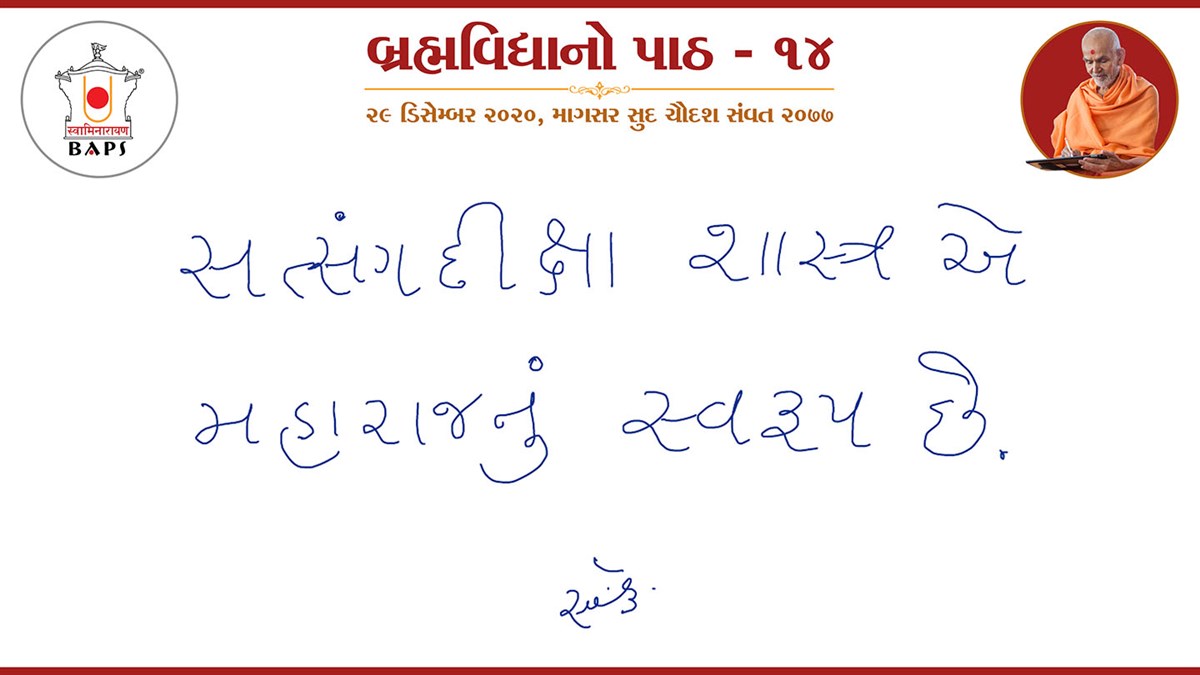 બ્રહ્મવિદ્યાનો પાઠ - ૧૪
૨૯ ડિસેમ્બર ૨૦૨૦, માગસર સુદ ચૌદશ સંવત ૨૦૭૭
स्वामिनारायण
BAPS
સત્સંગદીક્ષા શાસ્ત્ર એ
મહારાજનું સ્વરૂપ છે.